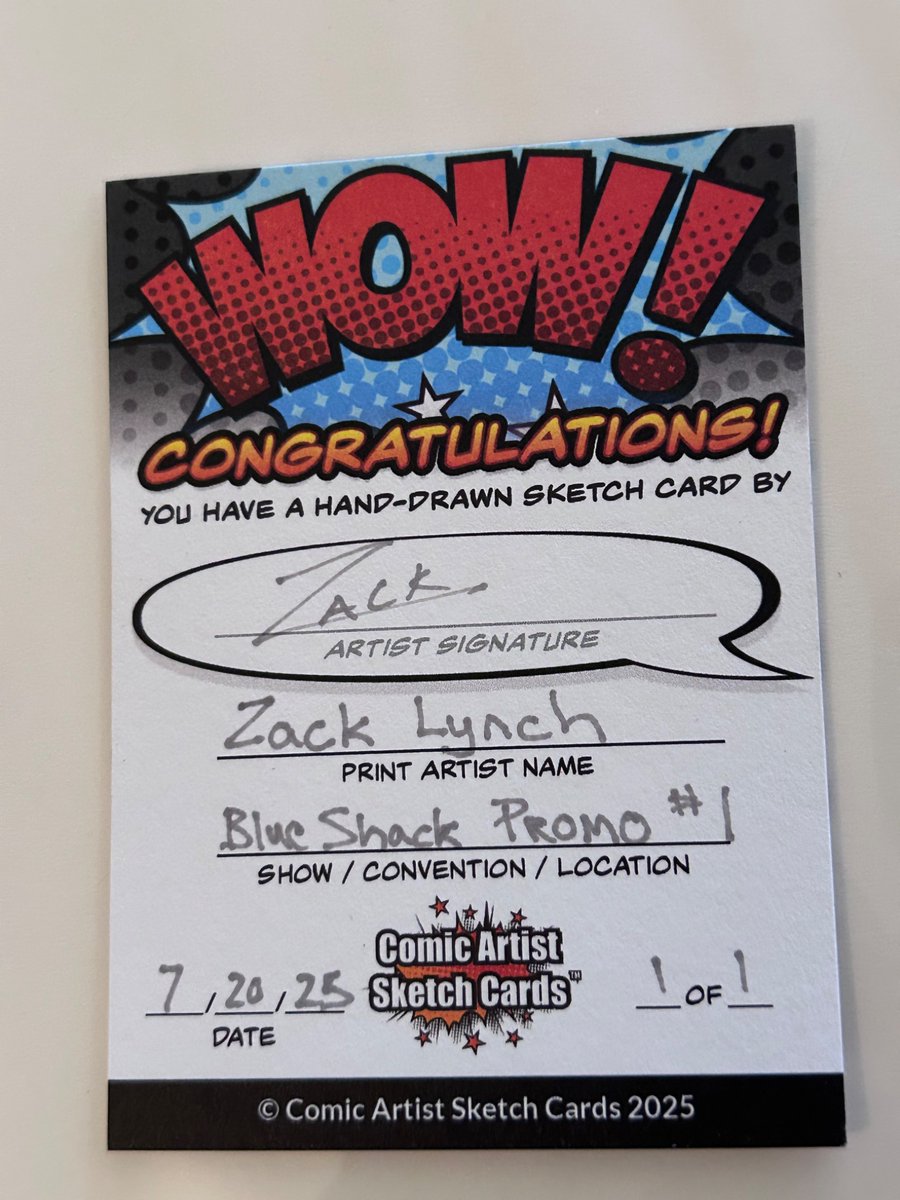 WOW!
CONGRATULATIONS!
YOU HAVE A HAND-DRAWN SKETCH CARD BY
ZACK
ARTIST SIGNATURE
Zack Lynch
PRINT ARTIST NAME
Blue Shack PROMO #1
SHOW / CONVENTION / LOCATION
Comic Artist
Sketch Cards™
7/20/25
DATE
1 OF 1
© Comic Artist Sketch Cards 2025